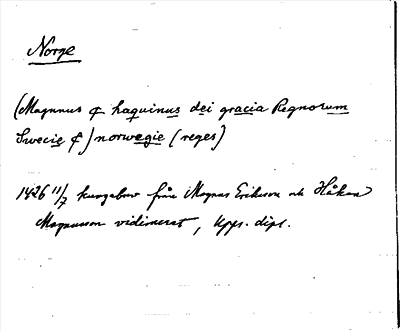 Norge
(Magnnus & haquinus dei gracia Regnorum
Swecie &) norwegie (reges)
1426 11/7 kungabrev från Magnus Eriksson och Håkan
Magnusson vidimerat, Upps. dipl.